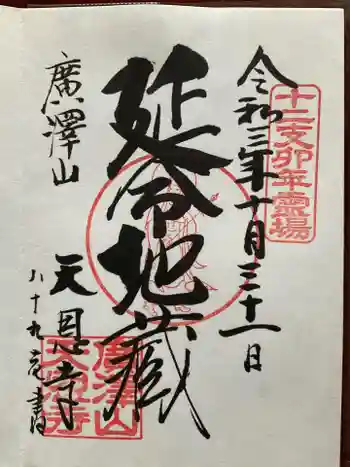 十二支卯年霊場
令和三年十月三十一日
延命地蔵
廣澤山
天恩寺
八十九亮書
廣澤山
天恩寺